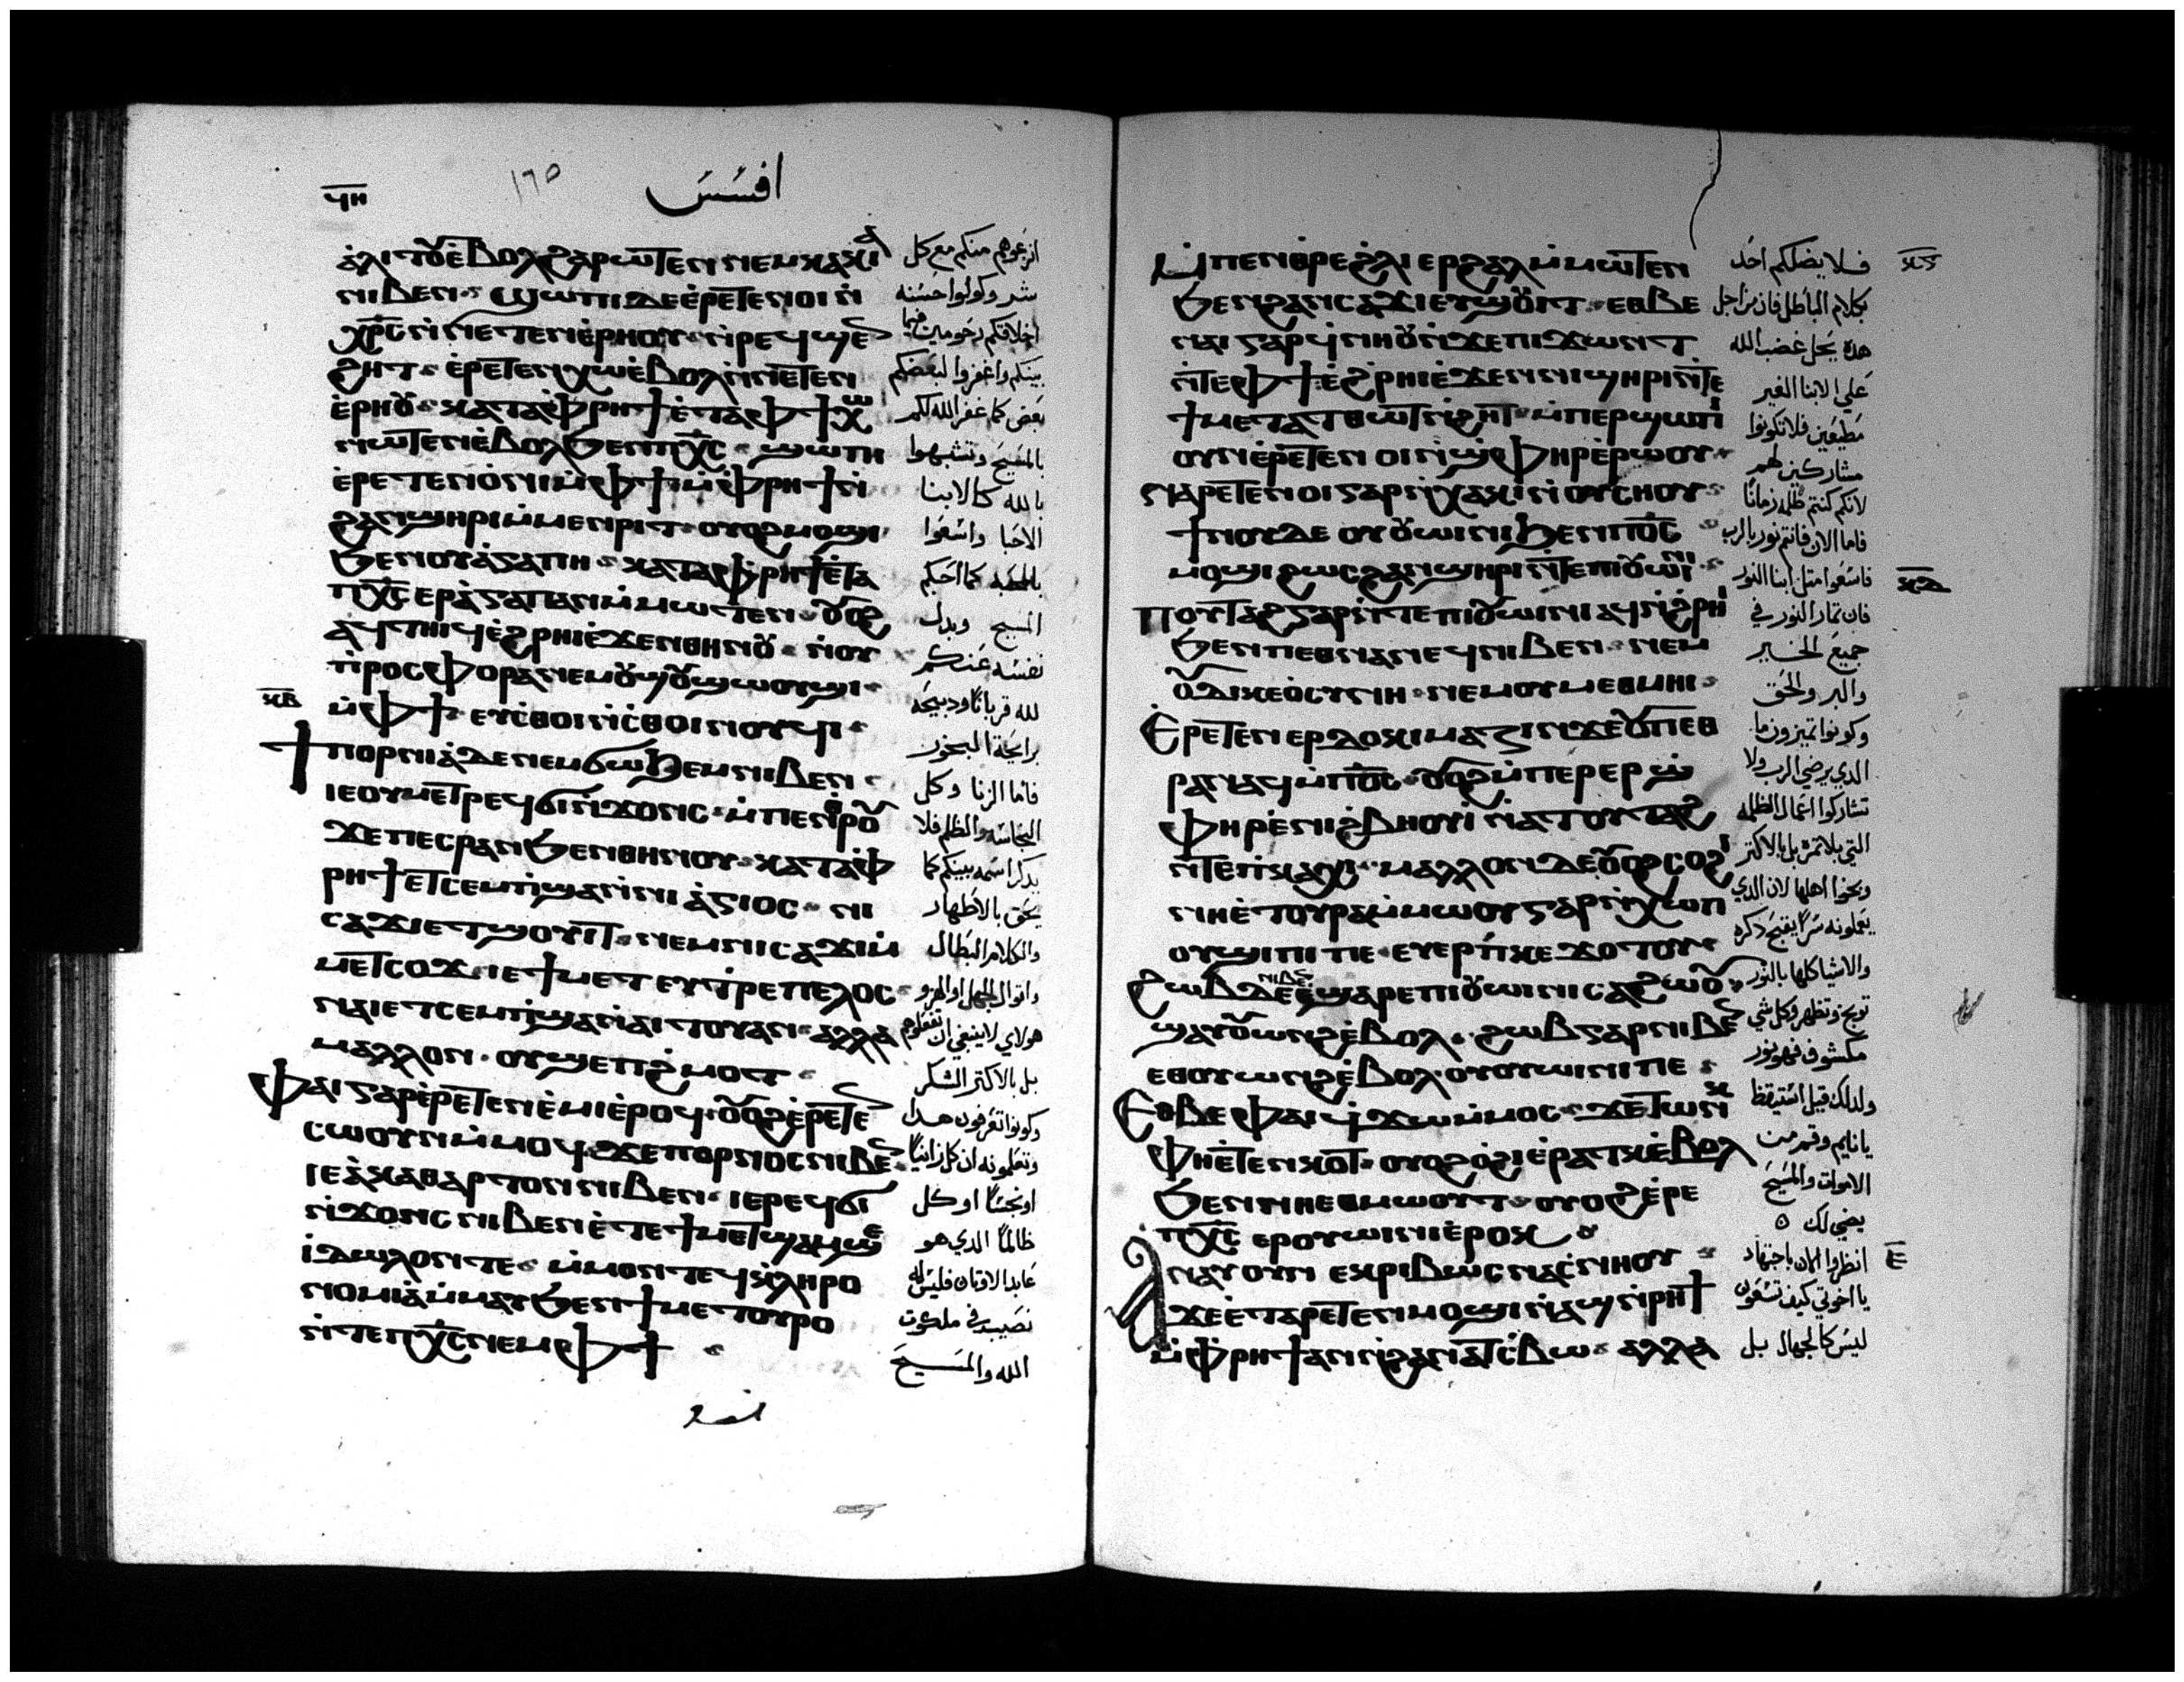 ϥⲏ
١٦٥
افسس
ⲁⲗⲓⲧⲟⲩ ⲉⲃⲟⲗ ϩⲁⲣⲱⲧⲉⲛ ⲛⲉⲙ ⲕⲁⲕⲓⲁ
ⲛⲓⲃⲉⲛ ϣⲱⲡⲓ ⲇⲉ ⲉⲣⲉⲧⲉⲛⲟⲓ ⲛ̀
ⲭⲣ̅ⲥ̅ ⲛ̀ⲛⲉⲧⲉⲛⲉⲣⲏⲟⲩ ⲛ̀ⲣⲉϥϣⲉⲛ
ϩⲏⲧ ⲉⲣⲉⲧⲉⲛⲭⲱ ⲉⲃⲟⲗ ⲛ̀ⲛⲉⲧⲉⲛ
ⲉⲣⲏⲟⲩ ⲕⲁⲧⲁ ⲫⲣⲏϯ ⲉⲧⲁ ⲫϯ ⲭⲱ
ⲛⲱⲧⲉⲛ ⲉⲃⲟⲗ ϧⲉⲛ ⲡⲭ̅ⲥ̅ ϣⲱⲡⲓ
ⲉⲣⲉⲧⲉⲛⲟⲛⲓ ⲙ̀ⲫϯ ⲙ̀ⲫⲣⲏϯ ⲛ̀
ϩⲁⲛϣⲏⲣⲓ ⲙ̀ⲙⲉⲛⲣⲓⲧ ⲟⲩⲟϩ ⲙⲟϣⲓ
ϧⲉⲛ ⲟⲩⲁⲅⲁⲡⲏ ⲕⲁⲧⲁ ⲫⲣⲏϯ ⲉⲧⲁ
ⲡⲭ̅ⲥ̅ ⲉⲣⲁⲅⲁⲡⲁⲛ ⲙ̀ⲙⲱⲧⲉⲛ ⲟⲩⲟϩ
ⲁϥⲧⲏⲓϥ ⲉϩⲣⲏⲓ ⲉϫⲉⲛ ⲑⲏⲛⲟⲩ ⲛ̀ⲟⲩ
ⲡⲣⲟⲥⲫⲟⲣⲁ ⲛⲉⲙ ⲟⲩϣⲟⲩϣⲱⲟⲩϣⲓ
ⲙ̀ⲫϯ ⲉⲩⲥⲑⲟⲓ ⲛ̀ⲥⲑⲟⲓⲛⲟⲩϥⲓ
ⲕⲃ
ϯⲡⲟⲣⲛⲓⲁ ⲇⲉ ⲛⲉⲙ ϭⲱϧⲉⲙ ⲛⲓⲃⲉⲛ
ⲓⲉ ⲟⲩⲙⲉⲧⲣⲉϥϭⲓ ⲛ̀ϫⲟⲛⲥ ⲙ̀ⲡⲉⲛⲑⲣⲟⲩ
ϫⲉ ⲡⲉⲥⲣⲁⲛ ϧⲉⲛ ⲑⲏⲛⲟⲩ ⲕⲁⲧⲁ ⲫ
ⲣⲏϯ ⲉⲧⲥⲉⲙⲡϣⲁ ⲛ̀ⲛⲓⲁⲅⲓⲟⲥ ⲛⲓ
ⲥⲁϫⲓ ⲉⲧϣⲟⲩⲓⲧ ⲛⲉⲙ ⲛⲓⲥⲁϫⲓ ⲙ̀
ⲙⲉⲧⲥⲟϫ ⲓⲉ ϯⲙⲉⲧⲉⲩⲧⲣⲉⲡⲉⲗⲟⲥ
ⲛⲁⲓ ⲉⲧⲥⲉⲙⲡϣⲁ ⲛ̀ⲁⲓⲧⲟⲩ ⲁⲛ ⲁⲗⲗⲁ
ⲙⲁⲗⲗⲟⲛ ⲟⲩϣⲉⲡϩⲙⲟⲧ
ⲫⲁⲓ ⲅⲁⲣ ⲉⲣⲉⲧⲉⲛⲉⲙⲓ ⲉⲣⲟϥ ⲟⲩⲟϩ ⲉⲣⲉⲧⲉⲛ
ⲥⲱⲟⲩⲛ ⲙ̀ⲙⲟϥ ϫⲉ ⲡⲟⲣⲛⲟⲥ ⲛⲓⲃⲉⲛ
ⲓⲉ ⲁⲕⲁⲑⲁⲣⲧⲟⲛ ⲛⲓⲃⲉⲛ ⲓⲉ ⲣⲉϥϭⲓ
ⲛ̀ϫⲟⲛⲥ ⲛⲓⲃⲉⲛ ⲉⲧⲉ ϯⲙⲉⲧϣⲁⲙϣⲉ
ⲓⲇⲱⲗⲟⲛ ⲧⲉ ⲙ̀ⲙⲟⲛⲧⲉϥ ⲕⲗⲏⲣⲟ
ⲛⲟⲙⲓⲁ ⲙ̀ⲙⲁⲩ ϧⲉⲛ ϯⲙⲉⲧⲟⲩⲣⲟ
ⲛ̀ⲧⲉ ⲡⲭ̅ⲥ̅ ⲛⲉⲙ ⲫϯ
انزعوهم منكم مع كل
شر وكونوا حسنه
اخلاقكم رحومين فيما
بينكم واغفروا لبعضكم
بعض كما غفر الله لكم
بالمسيح وتشبهوا
بالله كالابنا
الاحبا واسعوا
بالمحبه كما احبكم
المسيح وبدل
نفسه عنكم
لله قربانا ودبيحه
برايحة البخور
فاما الزنا وكل
النجاسه والظلم فلا
يدكر اسمه بينكم كما
يحق بالاطهار
والكلام البطال
واقوال الجهل او الهزو
هولاي لا ينبغي ان تفعلوهم
بل بالاكتر الشكر
وكونوا تعرفون هدا
وتعلمونه ان كل زانيا
او نجسا او كل
ظالما الدي هو
عابد الاوثان فليس له
نصيب في ملكوت
الله والمسيح
ⲙ̀ⲡⲉⲛⲑⲣⲉ ϩⲗⲓ ⲉⲣϩⲁⲗ ⲙ̀ⲙⲱⲧⲉⲛ
ϧⲉⲛ ϩⲁⲛⲥⲁϫⲓ ⲉⲩϣⲟⲩⲓⲧ ⲉⲑⲃⲉ
ⲛⲁⲓ ⲅⲁⲣ ϥⲛⲏⲟⲩ ⲛ̀ϫⲉ ⲡⲓϫⲱⲛⲧ
ⲛ̀ⲧⲉ ⲫϯ ⲉϩⲣⲏⲓ ⲉϫⲉⲛ ⲛⲓϣⲏⲣⲓ ⲛ̀ⲧⲉ
ϯⲙⲉⲧⲁⲧⲑⲱⲧ ⲛ̀ϩⲏⲧ ⲙ̀ⲡⲉⲣϣⲱⲡⲓ
ⲟⲩⲛ ⲉⲣⲉⲧⲉⲛ ⲟⲓ ⲛ̀ϣⲫⲏⲣ ⲉⲣⲱⲟⲩ
ⲛⲁⲣⲉⲧⲉⲛⲟⲓ ⲅⲁⲣ ⲛ̀ⲭⲁⲕⲓ ⲛ̀ⲟⲩⲥⲏⲟⲩ
ϯⲛⲟⲩ ⲇⲉ ⲟⲩⲟⲩⲱⲓⲛⲓ ϧⲉⲛ ⲡⲟ̅ⲥ̅
ⲙⲟϣⲓ ϩⲱⲥ ϩⲁⲛϣⲏⲣⲓ ⲛ̀ⲧⲉ ⲡⲓⲟⲩⲱⲓⲛⲓ
ⲡⲟⲩⲧⲁϩ ⲅⲁⲣ ⲛ̀ⲧⲉ ⲡⲓⲟⲩⲱⲓⲛⲓ ⲁϥⲛ̀ϩⲣⲏⲓ
ϧⲉⲛ ⲡⲉⲑⲛⲁⲛⲉϥ ⲛⲓⲃⲉⲛ ⲛⲉⲙ
ⲟⲩⲇⲓⲕⲉⲟⲥⲩⲛⲏ ⲛⲉⲙ ⲟⲩⲙⲉⲑⲙⲏⲓ
ⲉⲣⲉⲧⲉⲛⲉⲣⲇⲟⲕⲓⲙⲁⲍⲓⲛ ϫⲉ ⲟⲩ ⲡⲉⲑ
ⲣⲁⲛⲁϥ ⲙ̀ⲡⲟ̅ⲥ̅ ⲟⲩⲟϩ ⲙ̀ⲡⲉⲣⲉⲣϣ
ⲫⲏⲣ ⲉⲛⲓϩⲃⲏⲟⲩⲓ ⲛ̀ⲁⲧⲟⲩⲧⲁϩ
ⲛ̀ⲧⲉ ⲡⲭⲁⲕⲓ ⲙⲁⲗⲗⲟⲛ ⲇⲉ ⲟⲩⲟϩ ⲥⲟϩⲓ
ⲛⲏ ⲉⲧⲟⲩⲣⲁ ⲙ̀ⲙⲱⲟⲩ ⲅⲁⲣ ⲛ̀ⲭⲱⲡ
ⲟⲩϣⲓⲡⲓ ⲡⲉ ⲉⲩⲉⲣⲡⲕⲉϫⲟⲧⲟⲩ
ϩⲱⲃ ⲇⲉ ⲛⲓⲃⲉⲛ ⲉϣⲁⲣⲉ ⲡⲓⲟⲩⲱⲓⲛⲓ ⲥⲁϩⲱⲟⲩ
ϣⲁⲩⲟⲩⲱⲛϩ ⲉⲃⲟⲗ ϩⲱⲃ ⲅⲁⲣ ⲛⲓⲃⲉⲛ
ⲉⲑⲟⲩⲱⲛϩ ⲉⲃⲟⲗ ⲟⲩⲟⲩⲱⲓⲛⲓ ⲡⲉ
ⲉⲑⲃⲉ ⲫⲁⲓ ϥϫⲱ ⲙ̀ⲙⲟⲥ ϫⲉ ⲧⲱⲛⲕ
ⲫⲏ ⲉⲧⲉⲛⲕⲟⲧ ⲟⲩⲟϩ ⲟϩⲓ ⲉⲣⲁⲧⲕ ⲉⲃⲟⲗ
ϧⲉⲛ ⲛⲏ ⲉⲑⲙⲱⲟⲩⲧ ⲟⲩⲟϩ ⲉⲣⲉ
ⲡⲭ̅ⲥ̅ ⲉⲣⲟⲩⲱⲓⲛⲓ ⲉⲣⲟⲕ
ⲁⲛⲁⲩ ⲟⲩⲛ ⲉⲕⲣⲓⲃⲱⲥ ⲛⲁⲥⲛⲏⲟⲩ
ϫⲉ ⲉⲡⲁⲣⲉⲧⲉⲛⲙⲟϣⲓ ⲛ̀ⲁϣ ⲛ̀ⲣⲏϯ
ⲙ̀ⲫⲣⲏϯ ⲁⲛ ⲛ̀ϩⲁⲛⲁⲧⲥⲃⲱ ⲁⲗⲗⲁ
فلا يضلكم احد
بكلام الباطل فان من اجل
هده يحل غضب الله
علي الابنا الغير
مطيعين فلا تكونوا
مشاركين لهم
لانكم كنتم ظلمه زمانا
فاما الان فانتم نور بالرب
فاسعوا مثل ابنا النور
فان ثمار النور في
جميع الخير
والبر والحق
وكونوا تميزون ما
الدي يرضي الرب ولا
تشاركوا اعمال الظلمه
التي بلا ثمره بل بالاكتر
وبخوا اهلها لان الدي
يعملونه سرا يقبح دكره
والاشيا كلها بالنور
توبخ وتظهر وكل شي
مكشوف فهو نور
ولدلك قيل استيقظ
يا نايم وقم من
الاموات والمسيح
يضي لك
انظروا الان باجتهاد
يا اخوتي كيف تسعون
ليس كالجهال بل